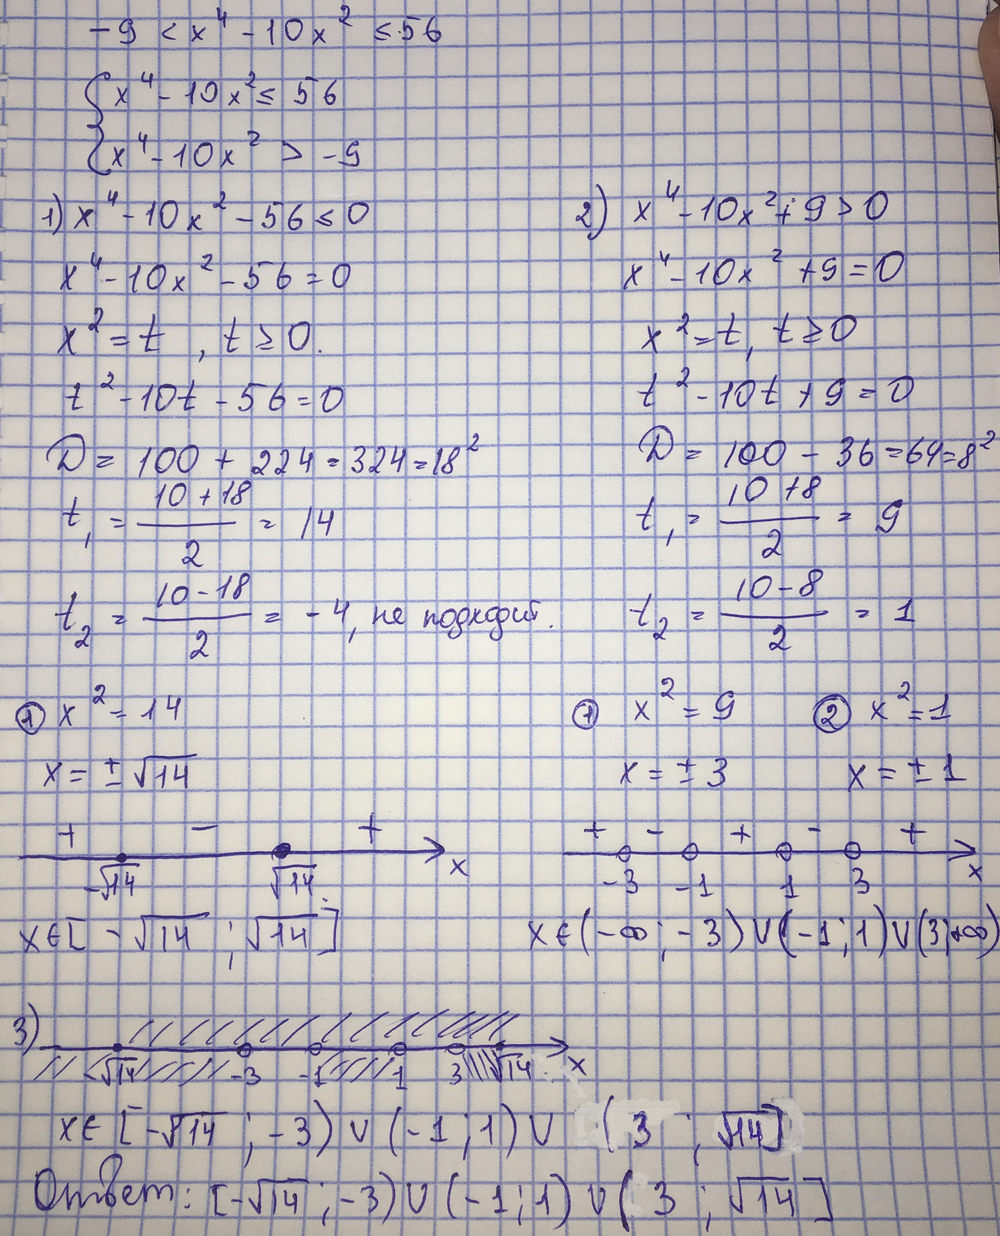 -9 < x⁴ - 10x² ≤ 56
{ x⁴ - 10x² ≤ 56
{ x⁴ - 10x² > -9
1) x⁴ - 10x² - 56 ≤ 0
x⁴ - 10x² - 56 = 0
x² = t , t ≥ 0.
t² - 10t - 56 = 0
D = 100 + 224 = 324 = 18²
t₁ = (10 + 18)/2 = 14
t₂ = (10 - 18)/2 = -4, не подходит.
① x² = 14
x = ± √14
+ - +
-√14 √14 x
x ∈ [ - √14 ; √14 ]
2) x⁴ - 10x² + 9 > 0
x⁴ - 10x² + 9 = 0
x² = t, t ≥ 0
t² - 10t + 9 = 0
D = 100 - 36 = 64 = 8²
t₁ = (10 + 8)/2 = 9
t₂ = (10 - 8)/2 = 1
① x² = 9 ② x² = 1
x = ± 3 x = ± 1
+ - + - +
-3 -1 1 3 x
x ∈ (-∞; -3) ∪ (-1; 1) ∪ (3; +∞)
3)
-√14 -3 -1 1 3 √14 x
x ∈ [-√14 ; -3) ∪ (-1; 1) ∪ (3 ; √14]
Ответ: [-√14 ; -3) ∪ (-1; 1) ∪ (3 ; √14 ]